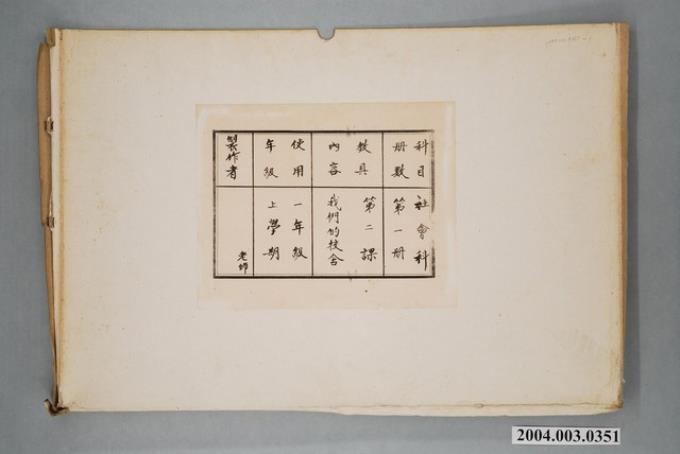 科目 社會科
冊數 第一冊
教具 第二課
內容 我們的校舍
使用 一年級
年級 上學期
製作者 老師
2004.003.0351